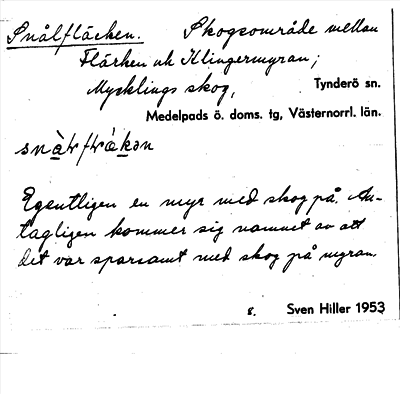 Snålfläcken. Skogsområde mellan
Flärken och Klingermyran;
Mycklings skog, Tynderö sn.
Medelpads ö. doms. tg, Västernorrl. län.
Egentligen en myr med skog på. An-
tagligen kommer sig namnet av att
det var sparsamt med skog på myran.
8. Sven Hiller 1953